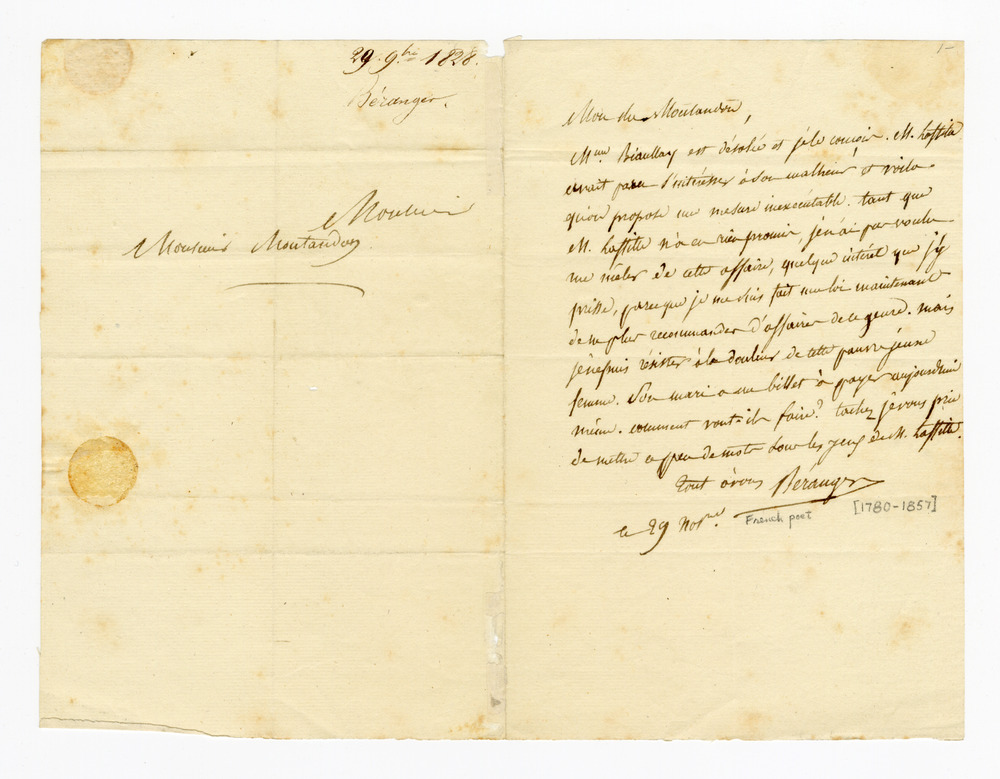 29. 9.bre 1828.
Béranger.
Monsieur
Monsieur Montandon
1-
Mon cher Montandon,
Mme est désolée et je le conçois. M. Laffitte
avait paru s'intéresser à son malheur et voila
qu'on propose une mesure inexécutable. tant que
M. Laffitte n'a en rien promis, je n'ai pas voulu
me mêler de cette affaire, quelque intérêt que j'y
prisse, parceque je me suis fait une loi maintenant
de ne plus recommander d'affaires de ce genre. mais
je ne puis résister à la douleur de cette pauvre jeune
femme. Son mari a un billet à payer aujourd'hui
même. comment vont-ils faire? tachez je vous prie
de mettre ce peu de mots sous les yeux de M. Laffitte.
Tout à vous Béranger
French poet [1780-1857]
le 29 Nov.bre